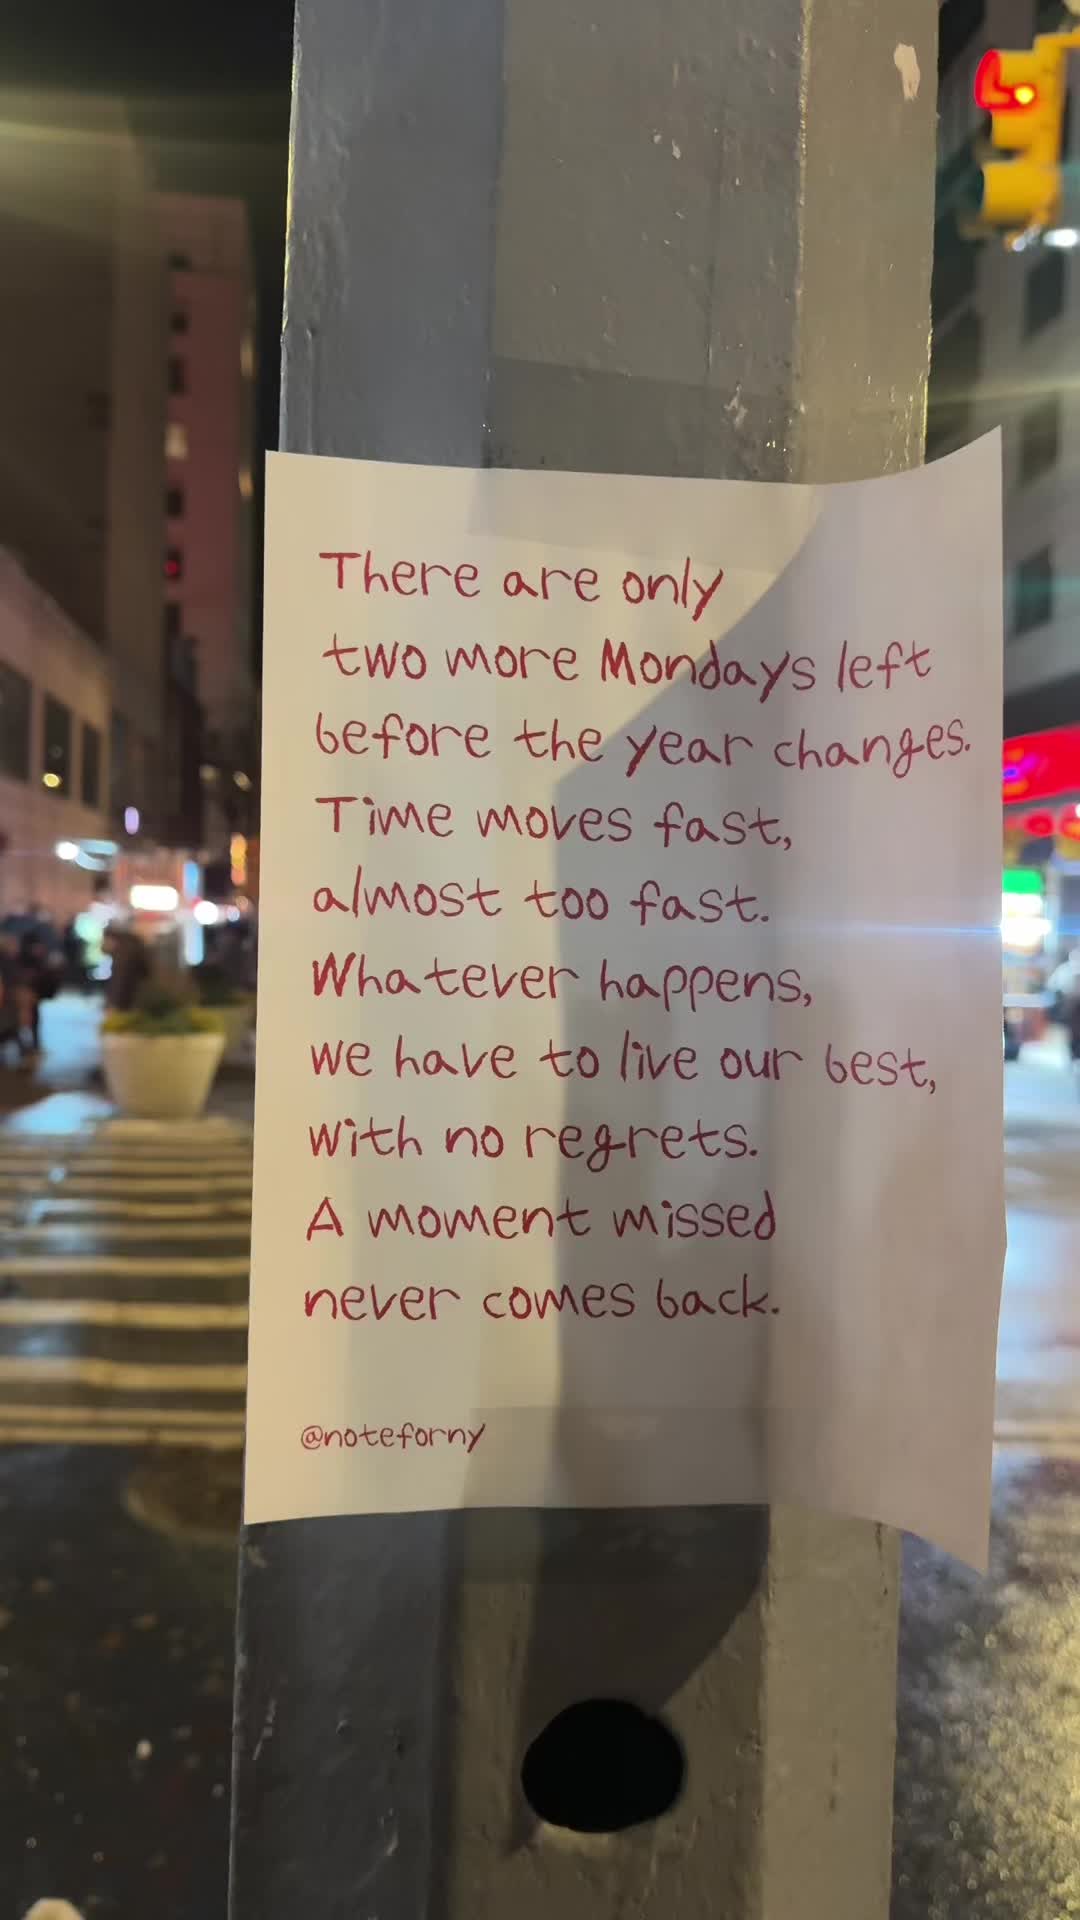 There are only
two more Mondays left
before the year changes.
Time moves fast,
almost too fast.
Whatever happens,
we have to live our best,
with no regrets.
A moment missed
never comes back.
@noteforny